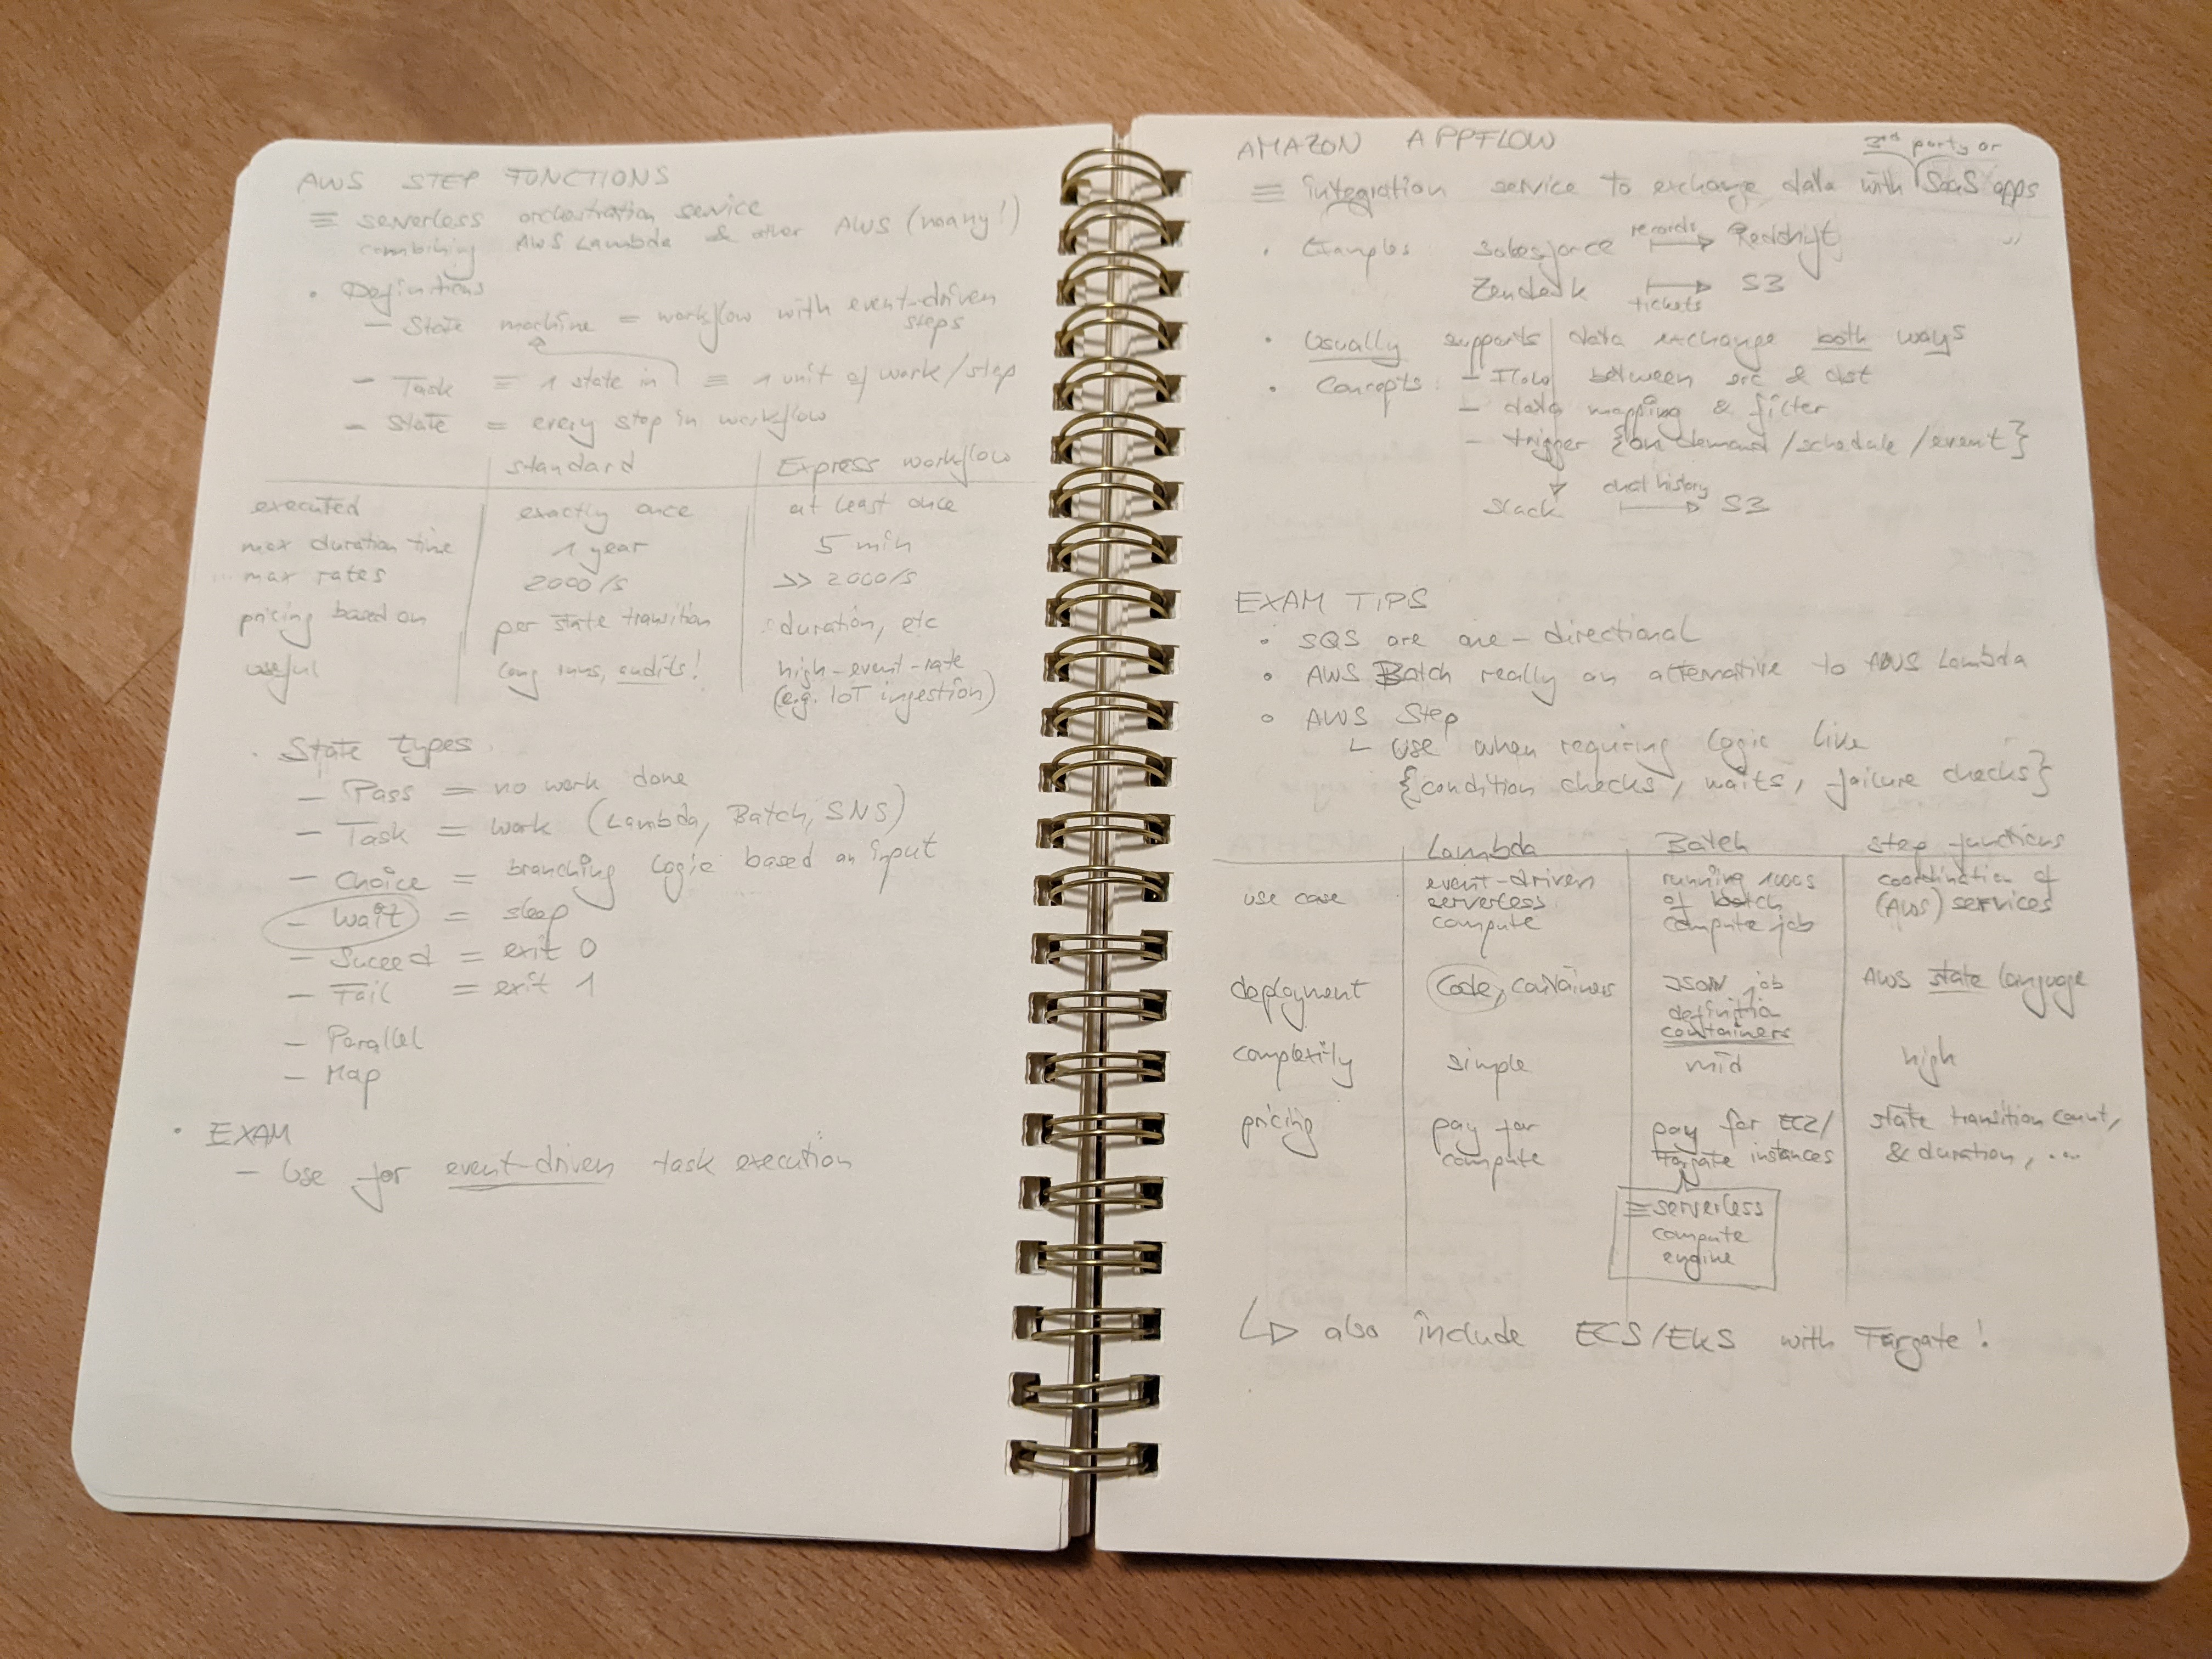 AWS STEP FUNCTIONS
≡ serverless orchestration service
combining AWS Lambda & other AWS (many!)
• Definitions
– State machine = workflow with event-driven
steps
– Task ≡ 1 state in ≡ 1 unit of work/step
– State = every step in workflow
standard Express workflow
executed exactly once at least once
max duration time 1 year 5 min
max rates 2000/s >> 2000/s
pricing based on per state transition duration, etc
useful long runs, audits! high-event-rate
(e.g. IoT ingestion)
• State types
– Pass = no work done
– Task = work (Lambda, Batch, SNS)
– Choice = branching logic based on input
– Wait = sleep
– Suceed = exit 0
– Fail = exit 1
– Parallel
– Map
• EXAM
– Use for event-driven task execution
AMAZON APPFLOW
3rd party or
≡ integration service to exchange data with SaaS apps
• Examples Salesforce records → Redshift
Zendesk tickets → S3
• Usually supports data exchange both ways
• Concepts: – Flow between src & dst
– data mapping & filter
– trigger {on demand/schedule/event}
Slack chat history → S3
EXAM TIPS
• SQS are one-directional
• AWS Batch really an alternative to AWS Lambda
• AWS Step
└ use when requiring logic like
{condition checks, waits, failure checks}
Lambda Batch step functions
use case event-driven running 1000s coordination of
serverless of batch (AWS) services
compute compute job
deployment Code, containers JSON job AWS state language
definition
containers
complexity simple mid high
pricing pay for pay for EC2/ state transition count,
compute Fargate instances & duration, ...
≡ serverless
compute
engine
↳ also include ECS/EKS with Fargate!